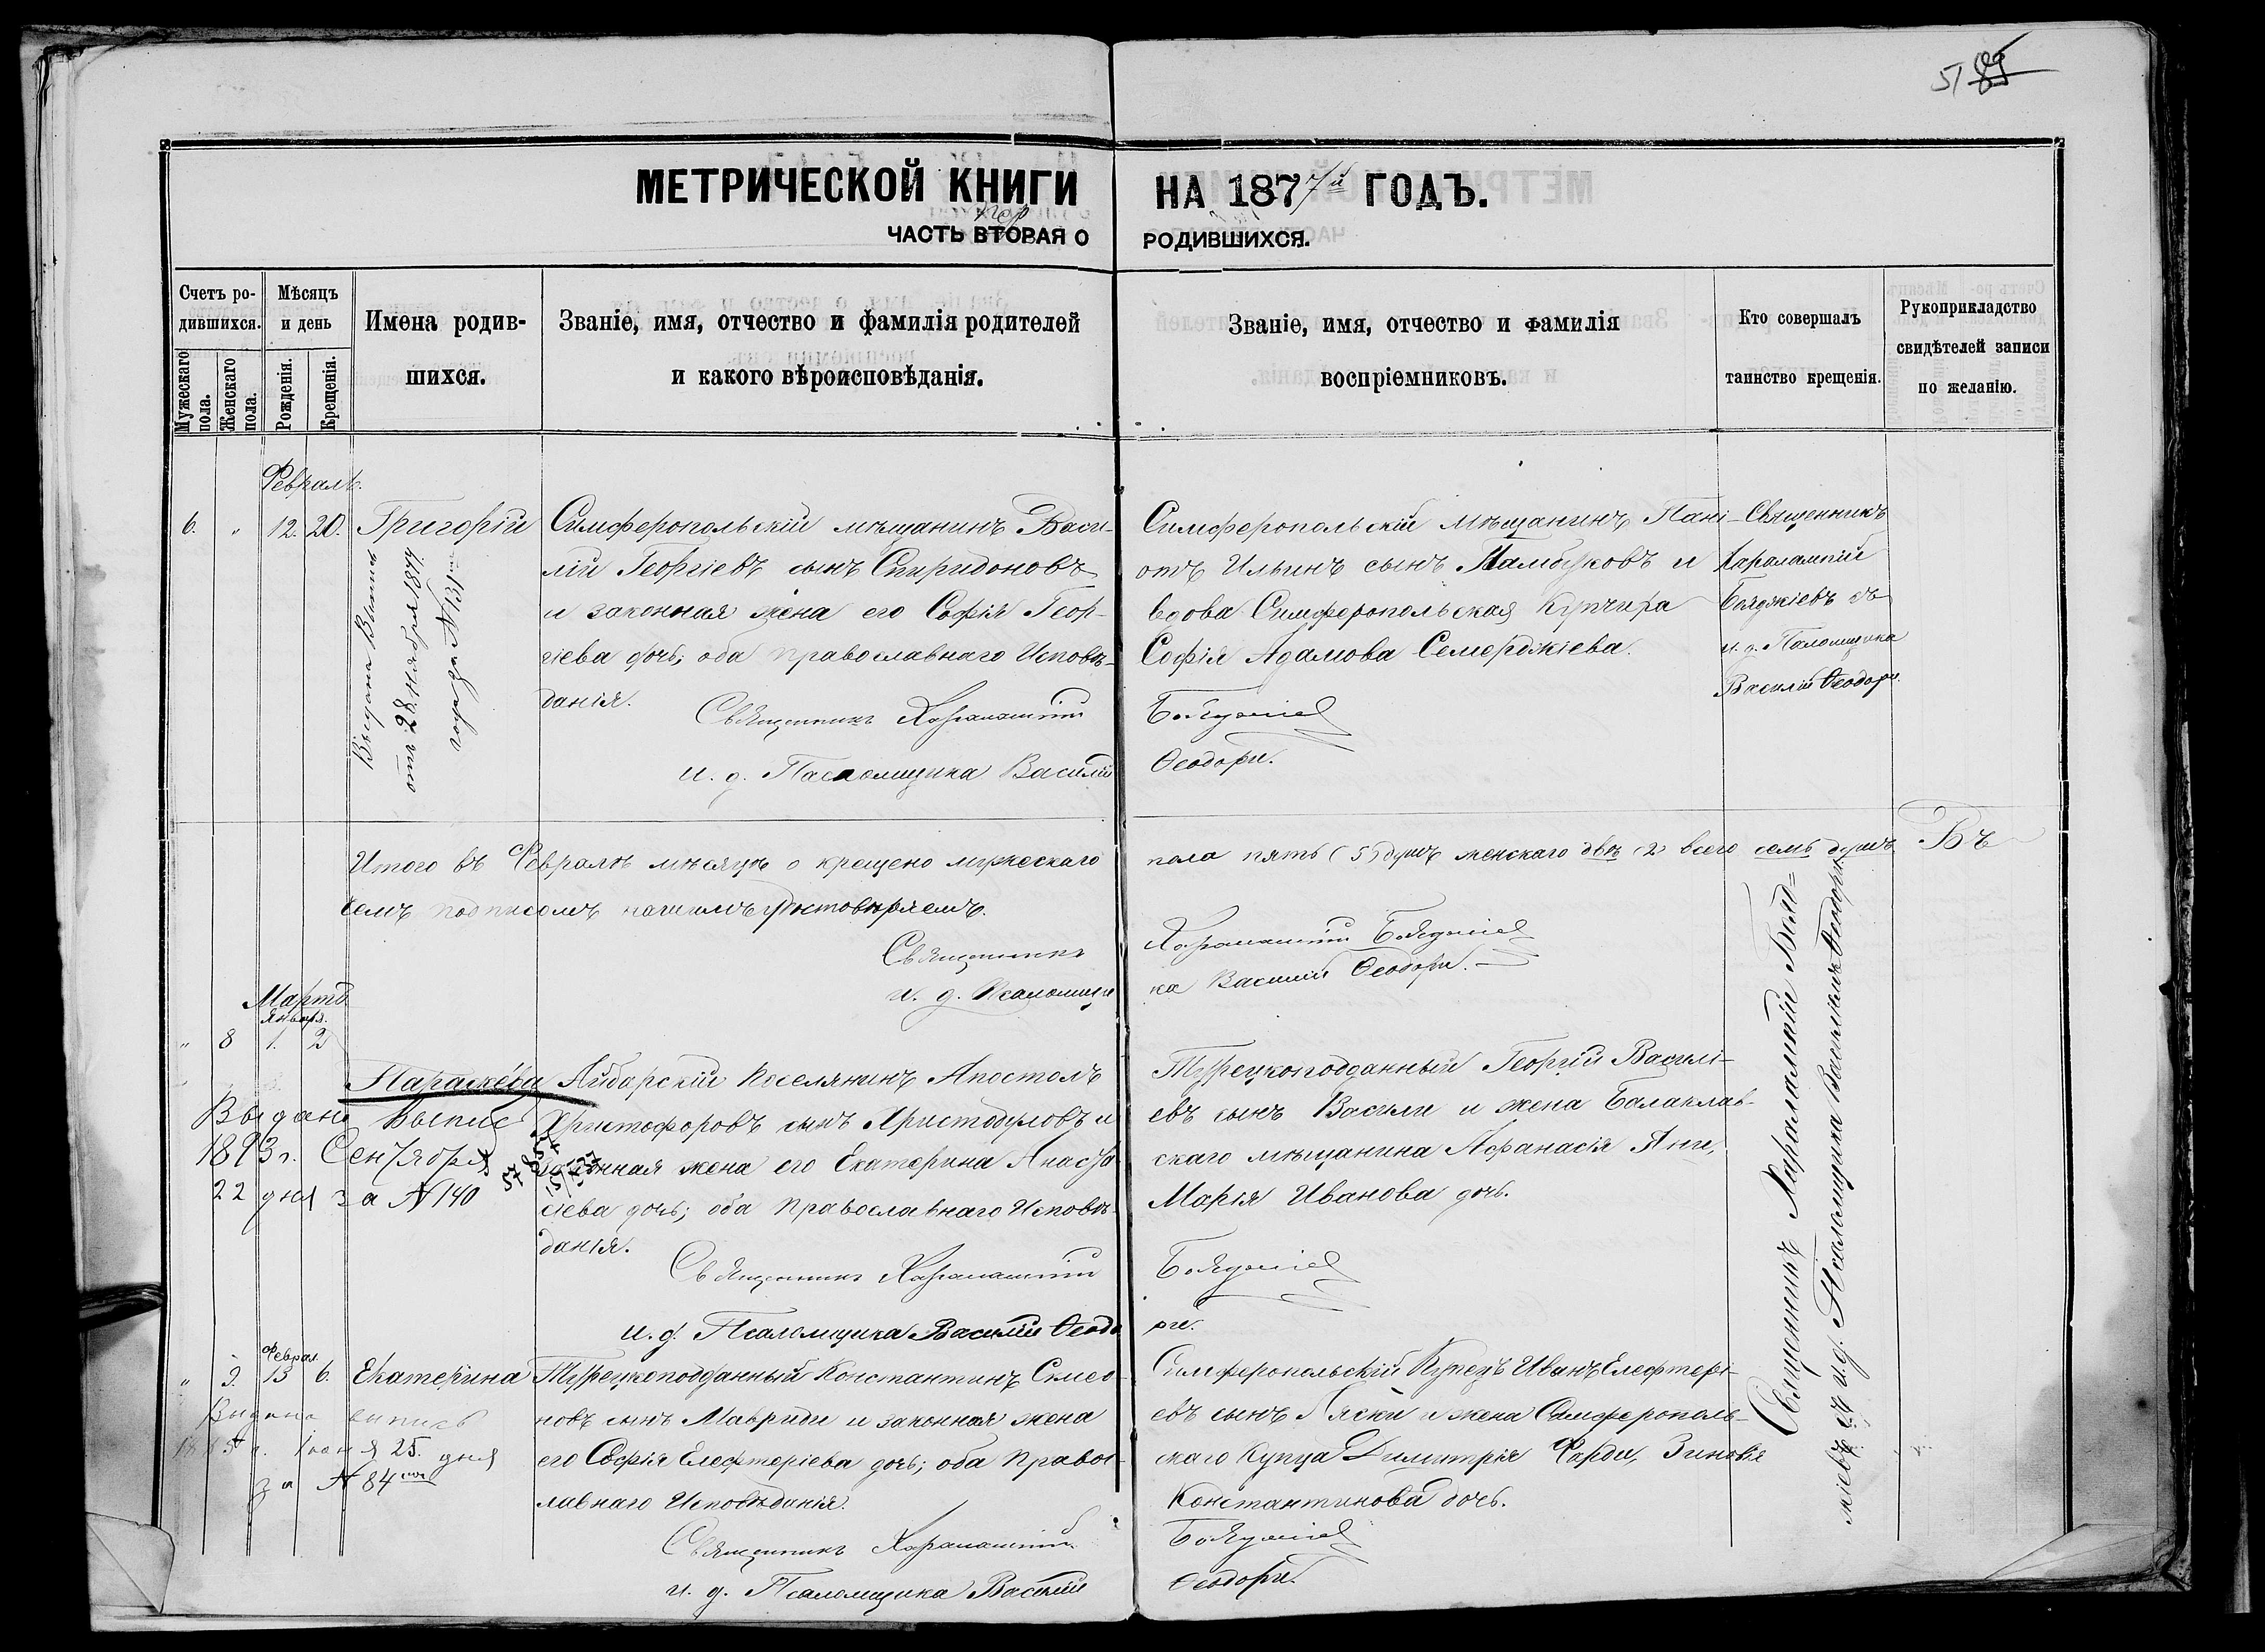 51 89
МЕТРИЧЕСКОЙ КНИГИ НА 1877й ГОДЪ.
пер
ЧАСТЬ ВТОРАЯ О РОДИВШИХСЯ.
Счетъ родившихся.
Мужескаго пола.
Женскаго пола.
Мѣсяцъ и день
Рожденія.
Крещенія.
Имена родившихся.
Званіе, имя, отчество и фамилія родителей
и какого вѣроисповѣданія.
Званіе, имя, отчество и фамилія
воспріемниковъ.
Кто совершалъ
таинство крещенія.
Рукоприкладство
свидѣтелей записи
по желанію.
Февраль.
6. „ 12. 20. Григорій
Выдана Выпись
отъ 28 ноября 1844
года за № 131
Симферопольскій мѣщанинъ Васи-
лій Георгіевъ сынъ Спиридоновъ
и законная жена его Софія Геор-
гіева дочь; оба православнаго Исповѣ-
данія.
Священникъ Харалампій Бояджіев
и. д. Псаломщика Василій Ѳеодори.
Симферопольскій мѣщанинъ Пані-
отъ Ильинъ сынъ Памбуковъ и
вдова Симферопольская купчиха
Софія Адамова Семерджіева.
Священникъ
Харалампій
Бояджіевъ съ
и. д. Псаломщика
Василій Ѳеодори.
Итого въ Февралѣ мѣсяцѣ окрещено мужескаго пола пять (5) душъ женскаго двѣ (2) всего семь душъ. Въ
семъ подписомъ нашимъ удостовѣряемъ.
Священникъ Харалампій Бояджіев
и. д. Псаломщика Василій Ѳеодори.
Мартъ
Январ.
„ 8 1. 2
Параскева
Выдана Выпись
1893 г. Сентября
22 дня за № 140
Айбарскій поселянинъ Апостолъ
Христофоровъ сынъ Христодуловъ и
законная жена его Екатерина Анаста-
сіева дочь; оба Православнаго Исповѣ-
данія.
Священникъ Харалампій Бояджіев
и. д. Псаломщика Василій Ѳеодори.
Турецкоподданный Георгій Василі-
евъ сынъ Васили и жена Балаклав-
скаго мѣщанина Афанасія Янги,
Марія Иванова дочь.
Феврал.
„ 9. 13 6. Екатерина
Выдана выпись
г. Іюня 25. дня
за № 84
Турецкоподданный Константинъ Симео-
новъ сынъ Мавриди и законная жена
его Софія Елефтеріева дочь; оба Правос-
лавнаго Исповѣданія.
Священникъ Харалампій Бояджіев
и. д. Псаломщика Василій Ѳеодори.
Симферопольскій Купецъ Иванъ Елефтері-
евъ сынъ и жена Симферополь-
скаго Купца Димитрія Фарди, Зиновія
Константинова дочь.
Священникъ Харалампій Бояд-
жіевъ съ и. д. Псаломщика Василіемъ Ѳеодори.